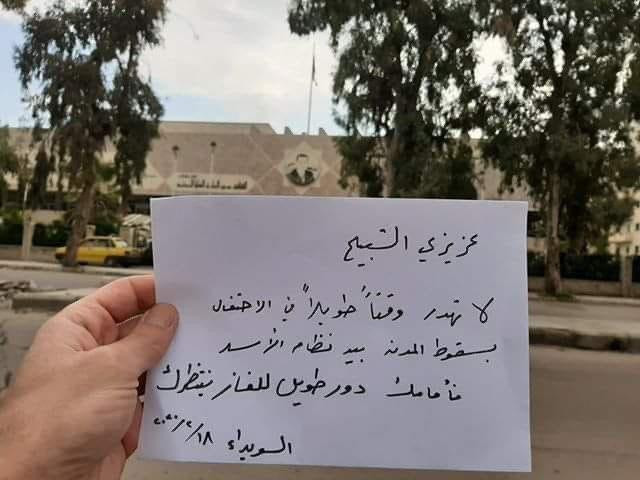 عزيزي الشبيح
لا تهدر وقتاً طويلاً في الاحتفال
بسقوط المدن بيد نظام الأسد
فأمامك دور طويل للغاز ينتظرك
السويداء ١٨/٢/٢٠٢٠